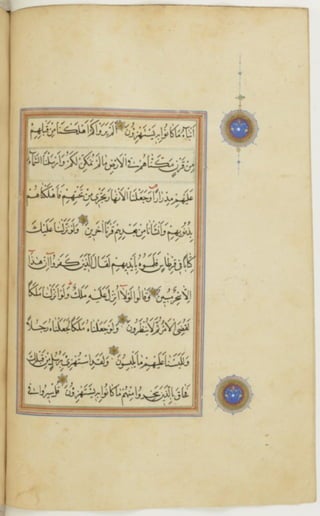 أنباء ما كانوا به يستهزؤن ألم يروا كم أهلكنا من قبلهم
من قرن مكناهم في الأرض ما لم نمكن لكم وأرسلنا السماء
عليهم مدرارا وجعلنا الأنهار تجري من تحتهم فأهلكناهم
بذنوبهم وأنشأنا من بعدهم قرنا آخرين ولو نزلنا عليك
كتابا في قرطاس فلمسوه بأيديهم لقال الذين كفروا إن هذا
إلا سحر مبين وقالوا لولا أنزل عليه ملك ولو أنزلنا ملكا
لقضي الأمر ثم لا ينظرون ولو جعلناه ملكا لجعلناه رجلا
وللبسنا عليهم ما يلبسون ولقد استهزئ برسل من قبلك
فحاق بالذين سخروا منهم ما كانوا به يستهزؤن قل سيروا في